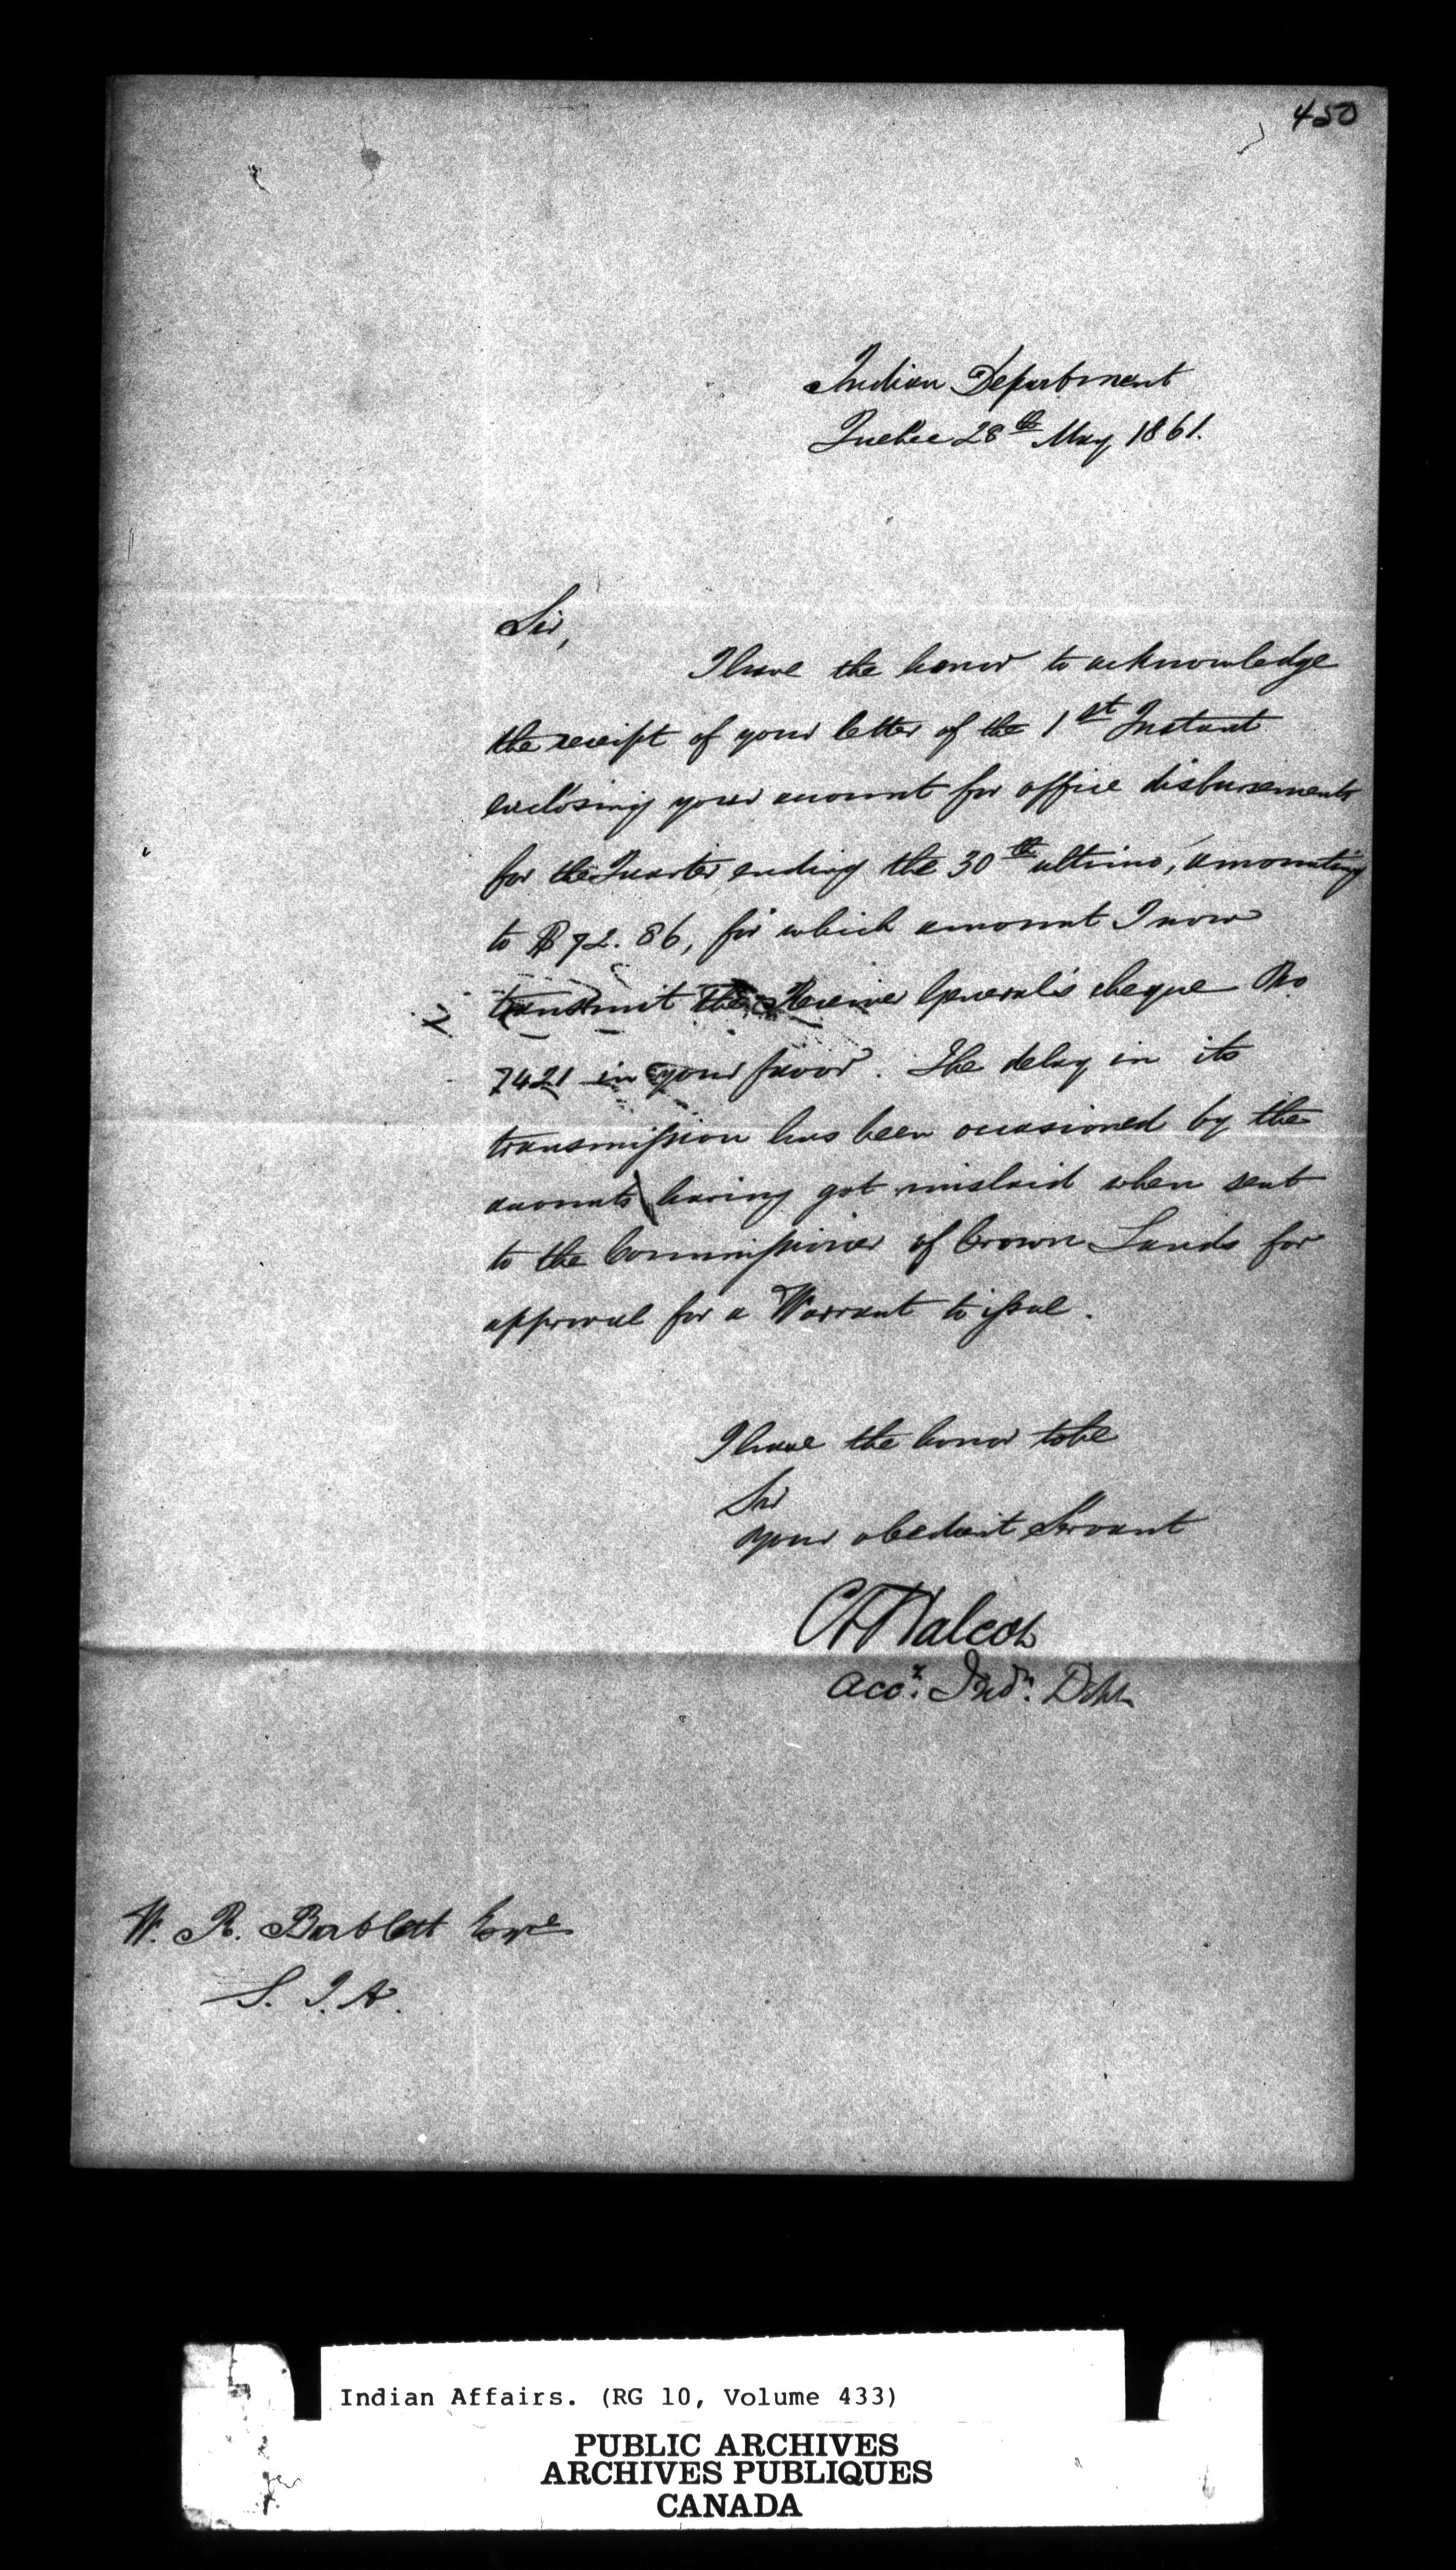 450
Indian Department
Quebec 28th May 1861.
Sir,
I have the honor to acknowledge
the receipt of your letter of the 1st Instant
enclosing your account for office disbursements
for the Quarter ending the 30th ultimo, amounting
to $72.86, for which amount I now
transmit the Receiver General's cheque No
7421 in your favor. The delay in its
transmission has been occasioned by the
accounts having got mislaid when sent
to the Commissioner of Crown Lands for
approval for a Warrant to issue.
I have the honor to be
Sir
Your obedient Servant
C T Walcot
Acct. Indn. Dept
W. R. Bartlett Esqre
S. I. A.
Indian Affairs. (RG 10, Volume 433)
PUBLIC ARCHIVES
ARCHIVES PUBLIQUES
CANADA